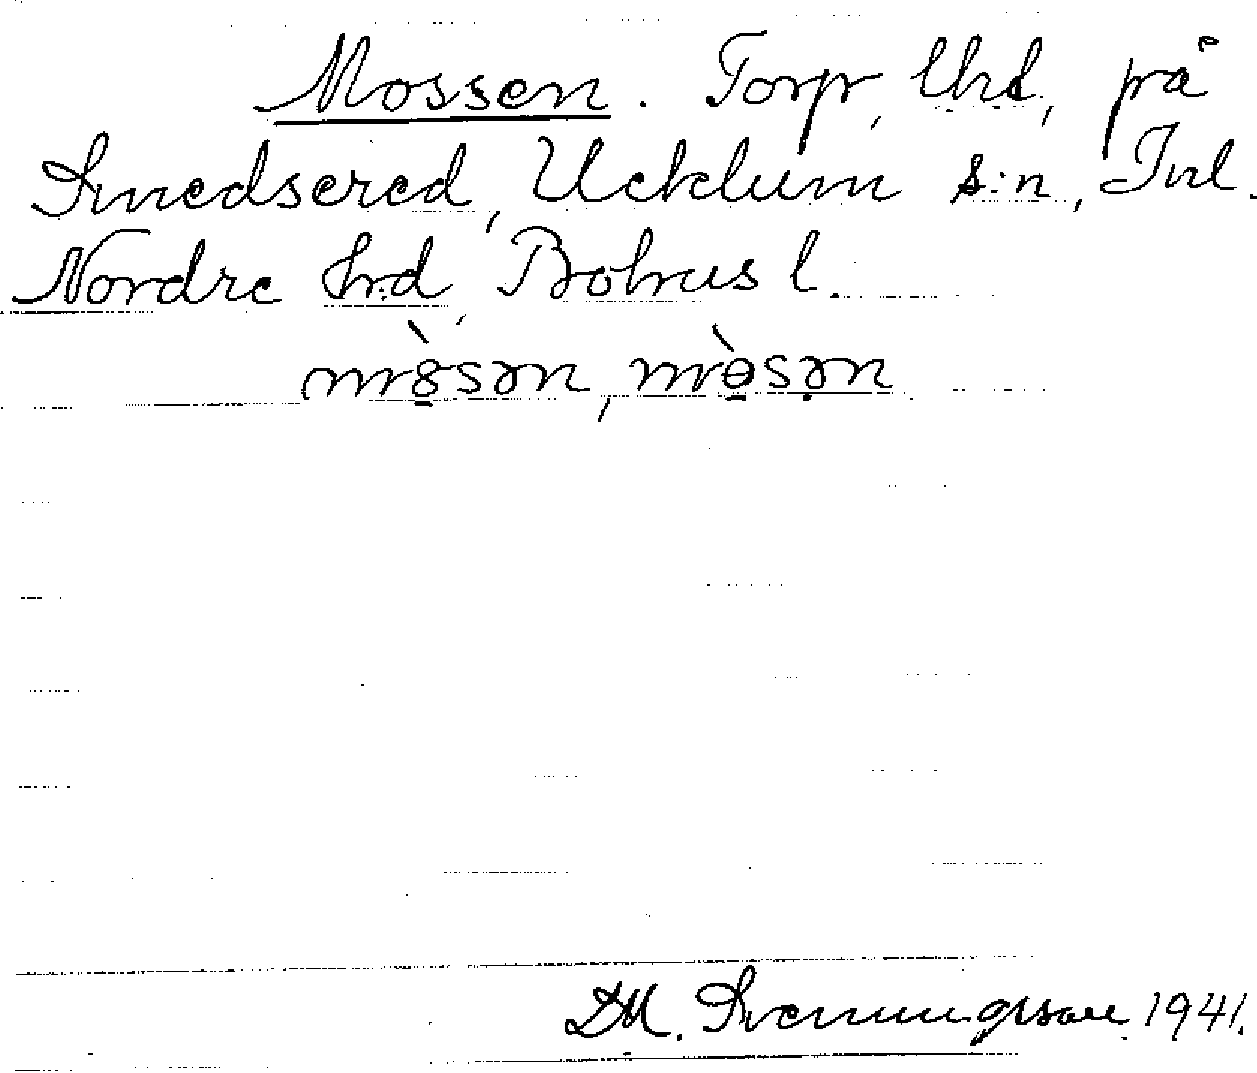 Mossen. Torp, lhd, på
Smedsered, Ucklum s:n, Inl.
Nordre hrd, Bohus l.
mòsən, mɵ̀sən
DM. Svenningsson 1941.